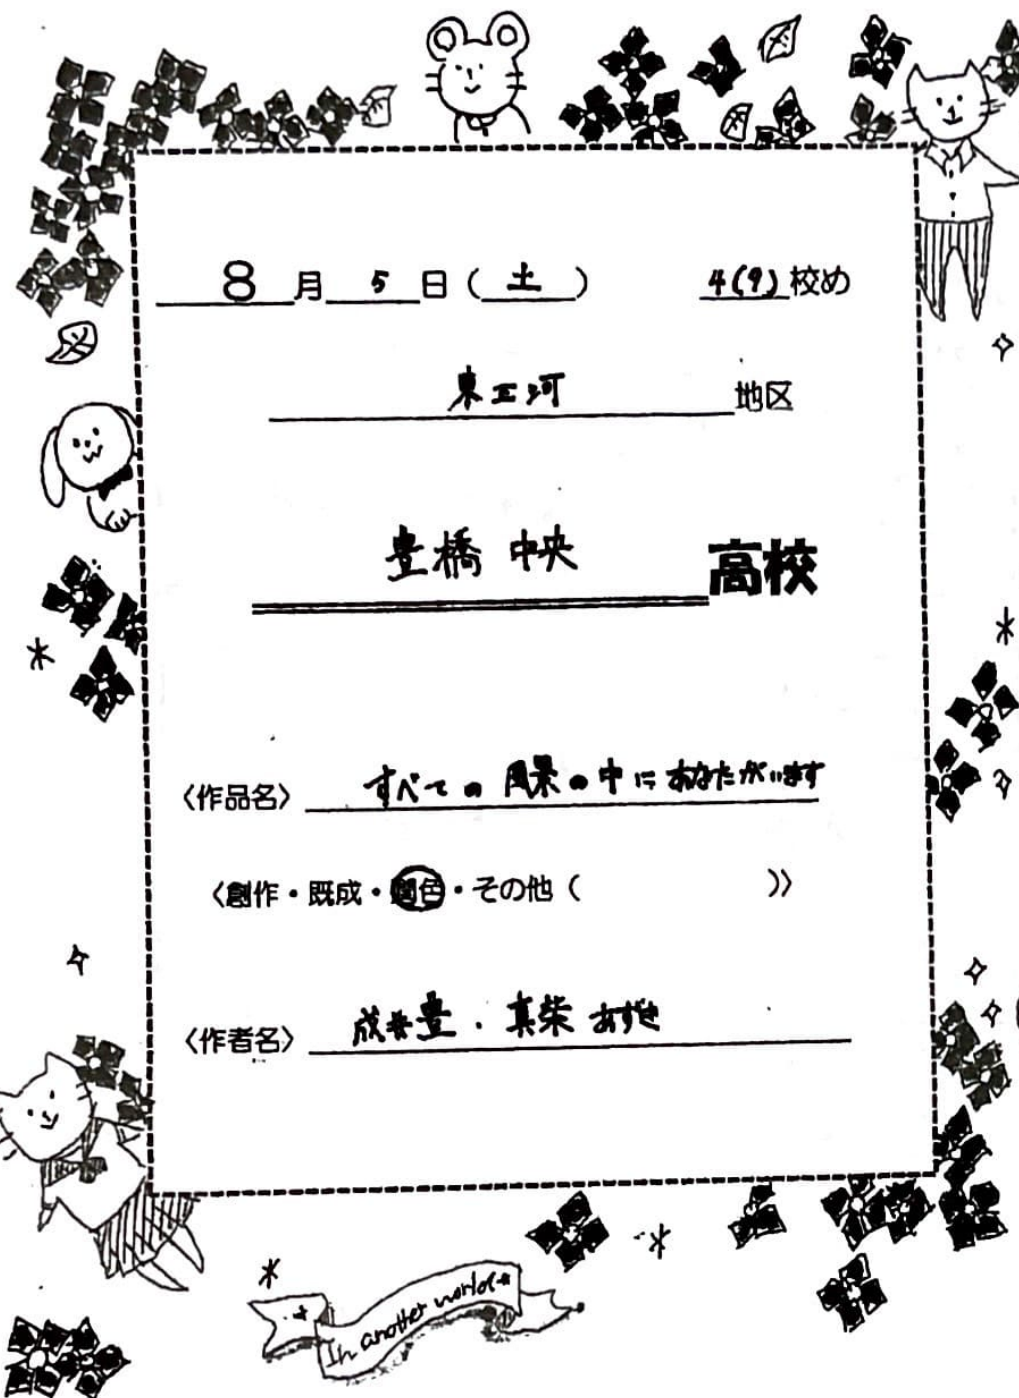 8月5日(土) 4(9)校め
東三河地区
豊橋中央高校
〈作品名〉すべての風景の中にあなたがいます
〈創作・既成・潤色・その他( )〉
〈作者名〉成井豊・真柴あずき
In another world